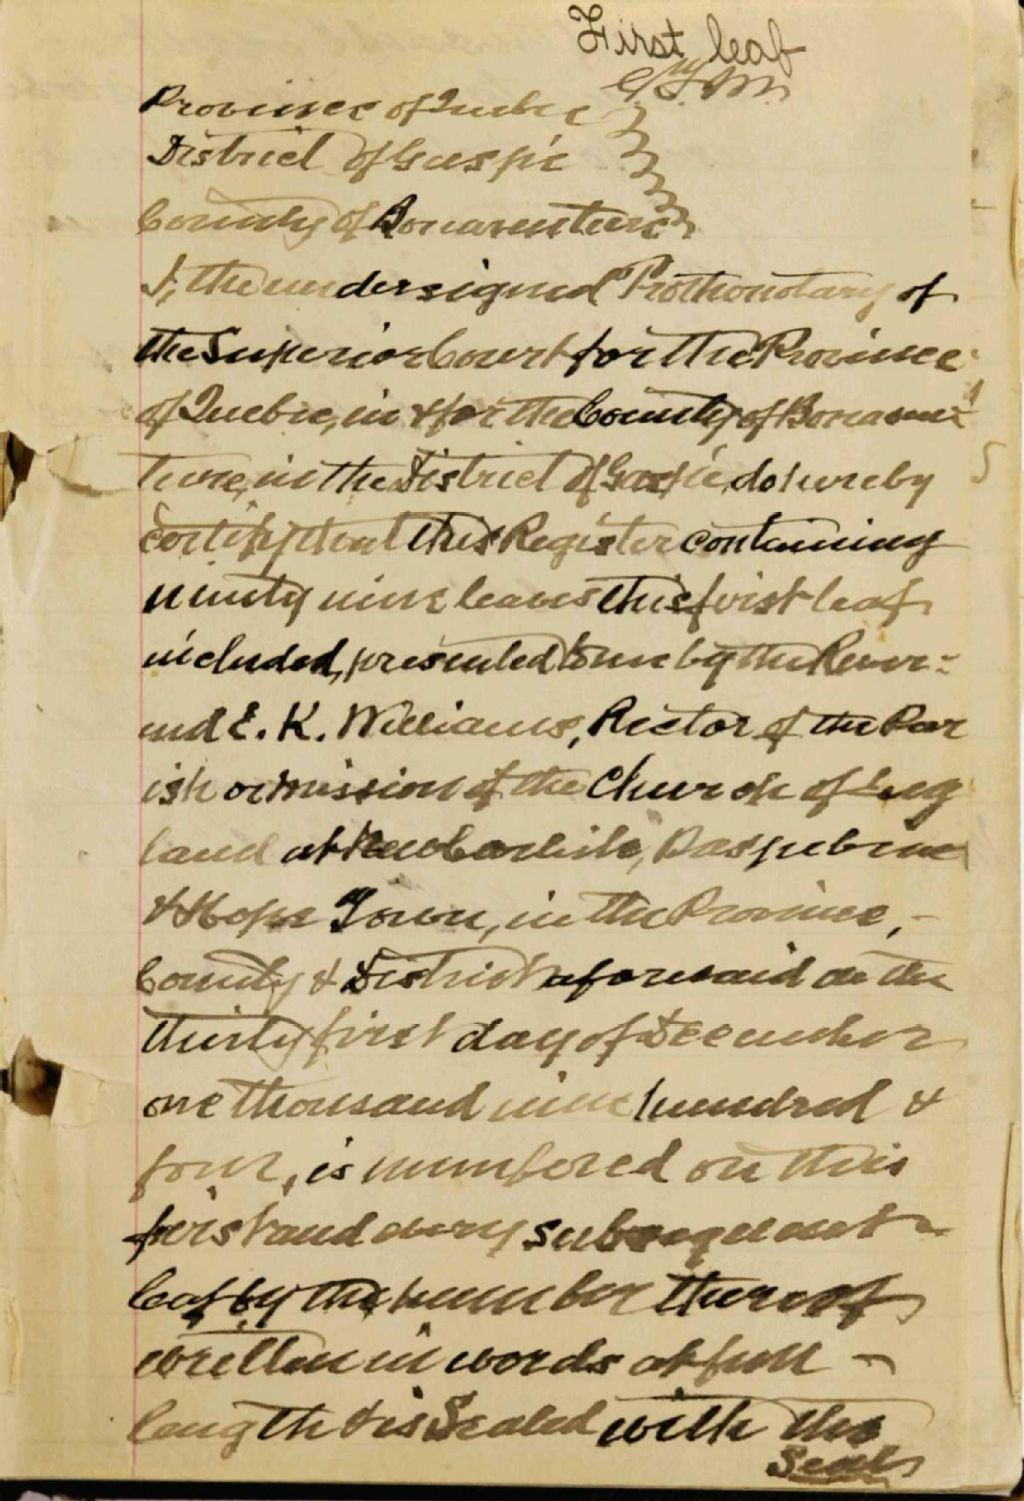 First leaf
Province of Quebec
District of Gaspé
County of Bonaventure
I, the undersigned Prothonotary of
the Superior Court for the Province
of Quebec, in & for the County of Bonaven-
ture, in the District of Gaspé, do hereby
certify that this Register containing
ninety nine leaves this first leaf
included, presented to me by the Rever-
end E. K. Williams, Rector of the Par
ish or Mission of the Church of Eng
land at New Carlisle, Paspebiac
& Hope Town, in the Province, -
County & District aforesaid on the
thirty first day of December
one thousand nine hundred &
four, is numbered on this
first and every subsequent
leaf by the number thereof
written in words at full -
length & is Sealed with the
Seal